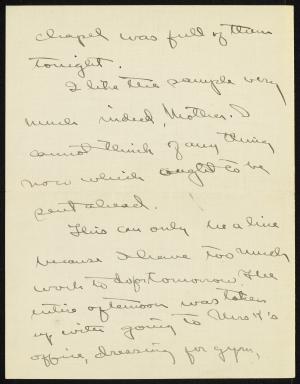 chapel was full of them
tonight.
I like the sample very
much indeed, Mother. I
cannot think of any thing
now which ought to be
sent ahead.
This can only be a line
because I have too much
work to do for tomorrow. The
entire afternoon was taken
up with going to Mrs H's
office, dressing for gym,